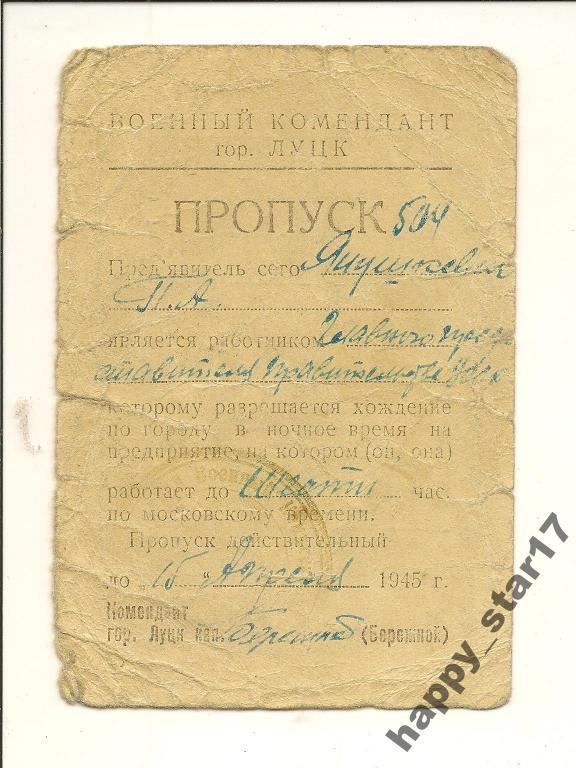 ВОЕННЫЙ КОМЕНДАНТ
гор. ЛУЦК
ПРОПУСК 504
Пред'явитель сего Янушкевич
П. А.
является работником Главного пред
ставителя Правительства УССР
которому разрешается хождение
по городу в ночное время на
предприятие, на котором (он, она)
работает до шести час.
по московскому времени.
Пропуск действительный
до „15" Апреля 1945 г.
Комендант
гор. Луцк кап. Бережной (Бережной)
happy_star17